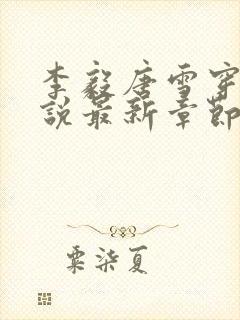 李毅唐雪穿
說最新章節
粟柒夏